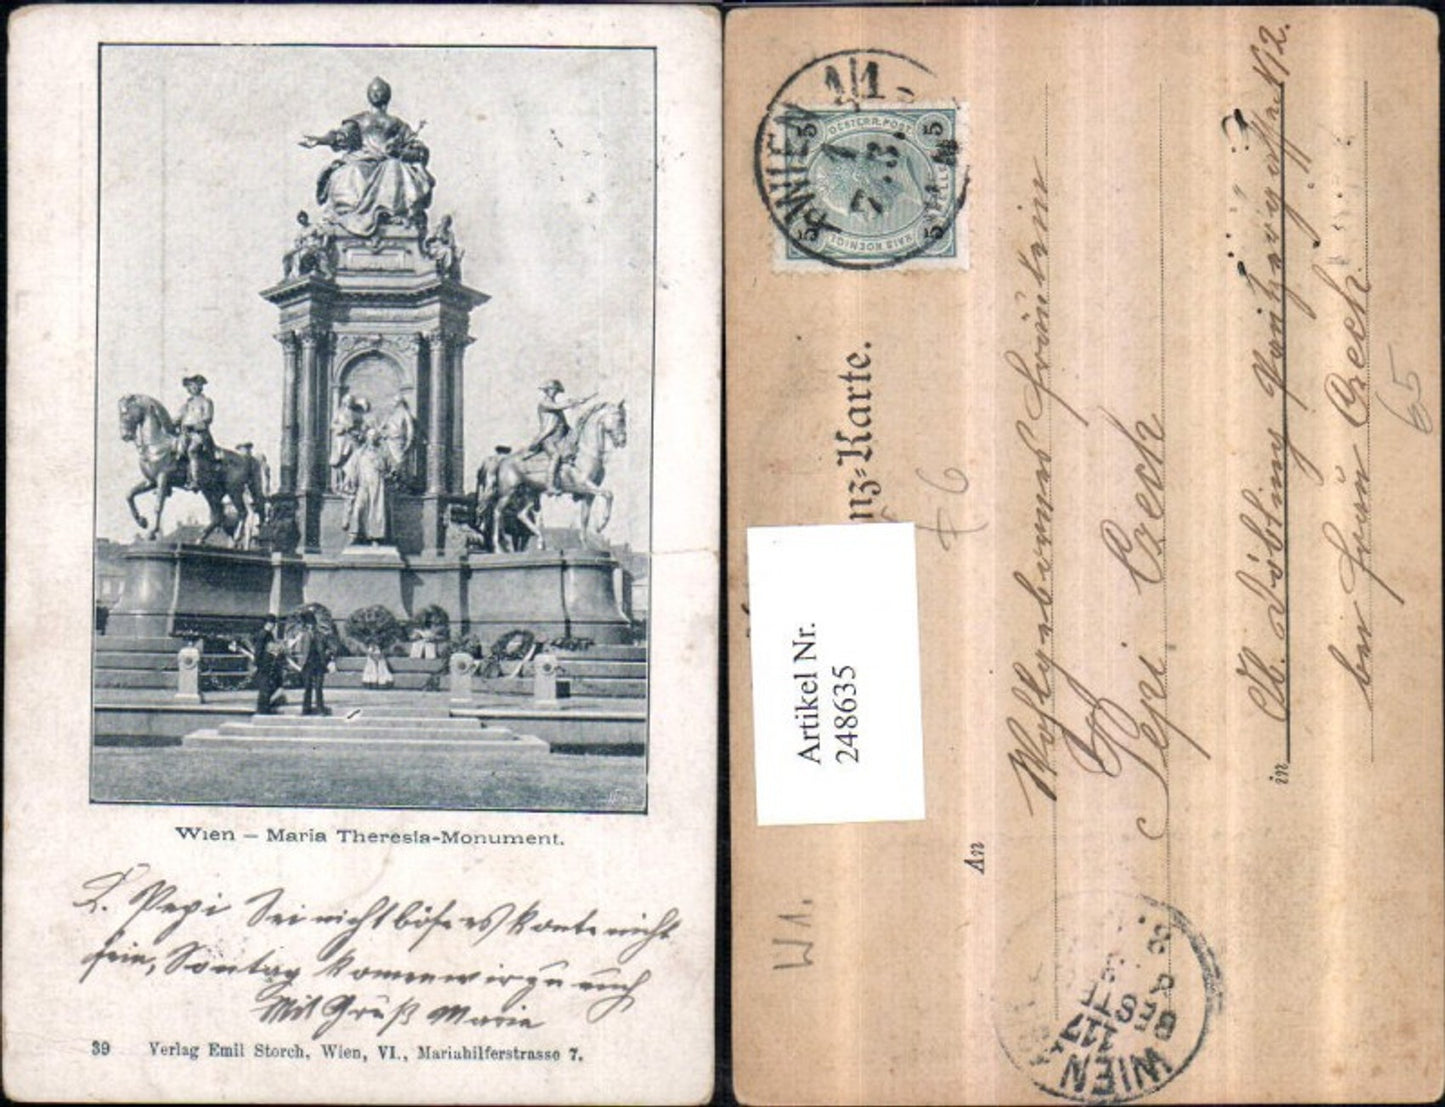 Wien – Maria Theresia-Monument.
L. Pepi Sei nicht böse es konte nicht
sein, Sontag komen wir zu euch
Mit Gruß Marie
39 Verlag Emil Storch, Wien, VI., Mariahilferstrasse 7.
WIEN 1/1
OESTERR. POST
5 5
5 5
nz-Karte.
Artikel Nr.
248635
W1.
76
An
Wohlgeborenes Fräulein
Pepi Czech
in Ob. Döbling
bei Frau Czech
65
WIEN
117
BEST